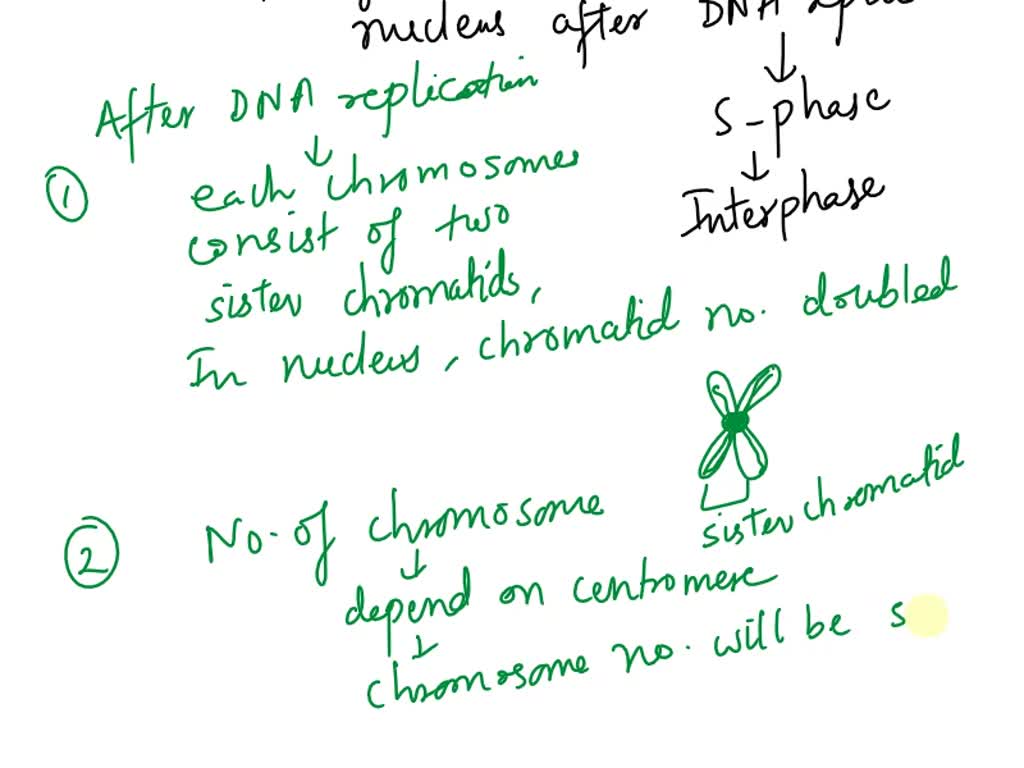 nucleus after DNA
After DNA replication
↓
S-phase
① each chromosomes
↓
consist of two
Interphase
sister chromatids,
In nucleus, chromatid no. doubled
② No. of chromosome
sister chromatid
↓
depend on centromere
↓
chromosome no. will be s